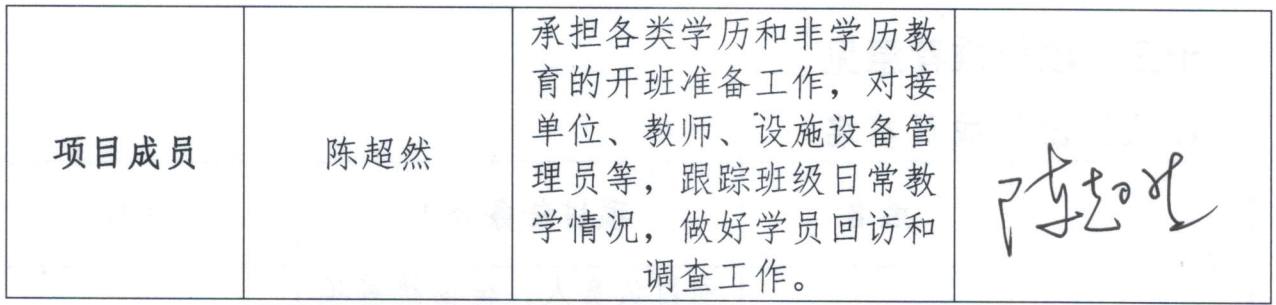 项目成员
陈超然
承担各类学历和非学历教
育的开班准备工作，对接
单位、教师、设施设备管
理员等，跟踪班级日常教
学情况，做好学员回访和
调查工作。
陈超然